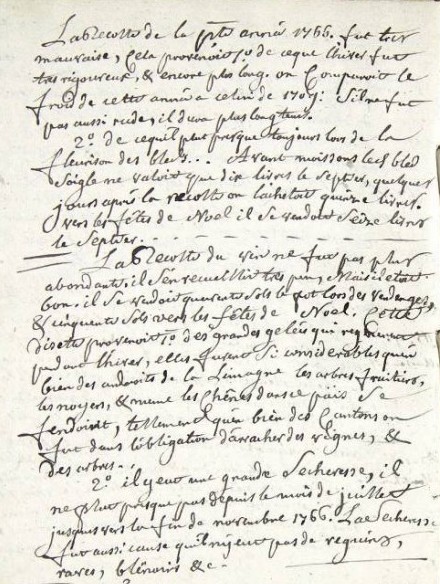 La Recolte de la pte année 1766. fut tres
mauvaise, Cela provenoit 1o. de ceque lhiver fut
tres rigoureux, & encore plus long. on Comparoit le
froid de cette année a celui de 1709: Silne fut
pas aussi rude, il dura plus longtems.
2o. de cequil plut presque toujours lors de la
fleurison des bleds... Avant moissons le bled
Soigle ne valoit que dix livres le Septier, quelques
jours après la recolte on lachetoit quinze livres.
vers les fêtes de Noel il se vendoit Seize livres
le Septier.
La Recolte du vin ne fut pas plus
abondante. il Sen recueillit tres peu, Mais il etoit
bon. il Se vendoit quarente Sols le pot lors des vendanges,
& cinquente Sols vers les fêtes de Noel. Cette
disete provenoit 1o. des grandes gelées qui regnerent
pendant lhiver, elles furent Si considerables quen
bien des endroits de la Limagne les arbres fruitiers,
les noyers, & meme les Chênes dans ce païs Se
fendoient, tellement quen bien des Cantons on
fut dans lobligation darracher des vignes, &
des arbres..
2o. il y eut une grande Secheresse, il
ne plut presque pas depuis le mois de juillet
jusques vers la fin de novembre 1766. La Secheresse
fut aussi cause quil ny eut pas de reguins,
raves, blénoirs & c.